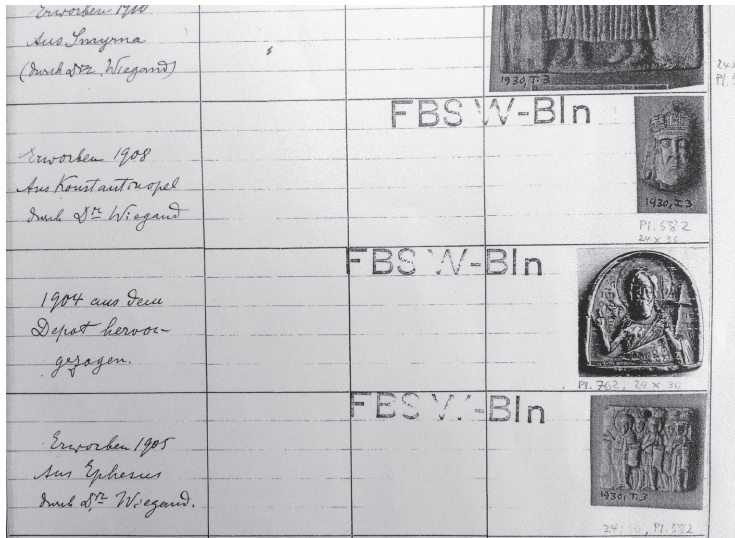 Erworben 1910
Aus Smyrna
(durch Dr. Wiegand)
1930, T. 3
24x
Pl. 5
FBS W-Bln
Erworben 1908
Aus Konstantinopel
durch Dr. Wiegand
1930, T. 3
Pl. 582
24 x 30
FBS W-Bln
1904 aus dem
Depot hervor-
gezogen.
Pl. 762, 24 x 30
FBS W-Bln
Erworben 1905
Aus Ephesus
durch Dr. Wiegand.
1930, T. 3
Pl. 582